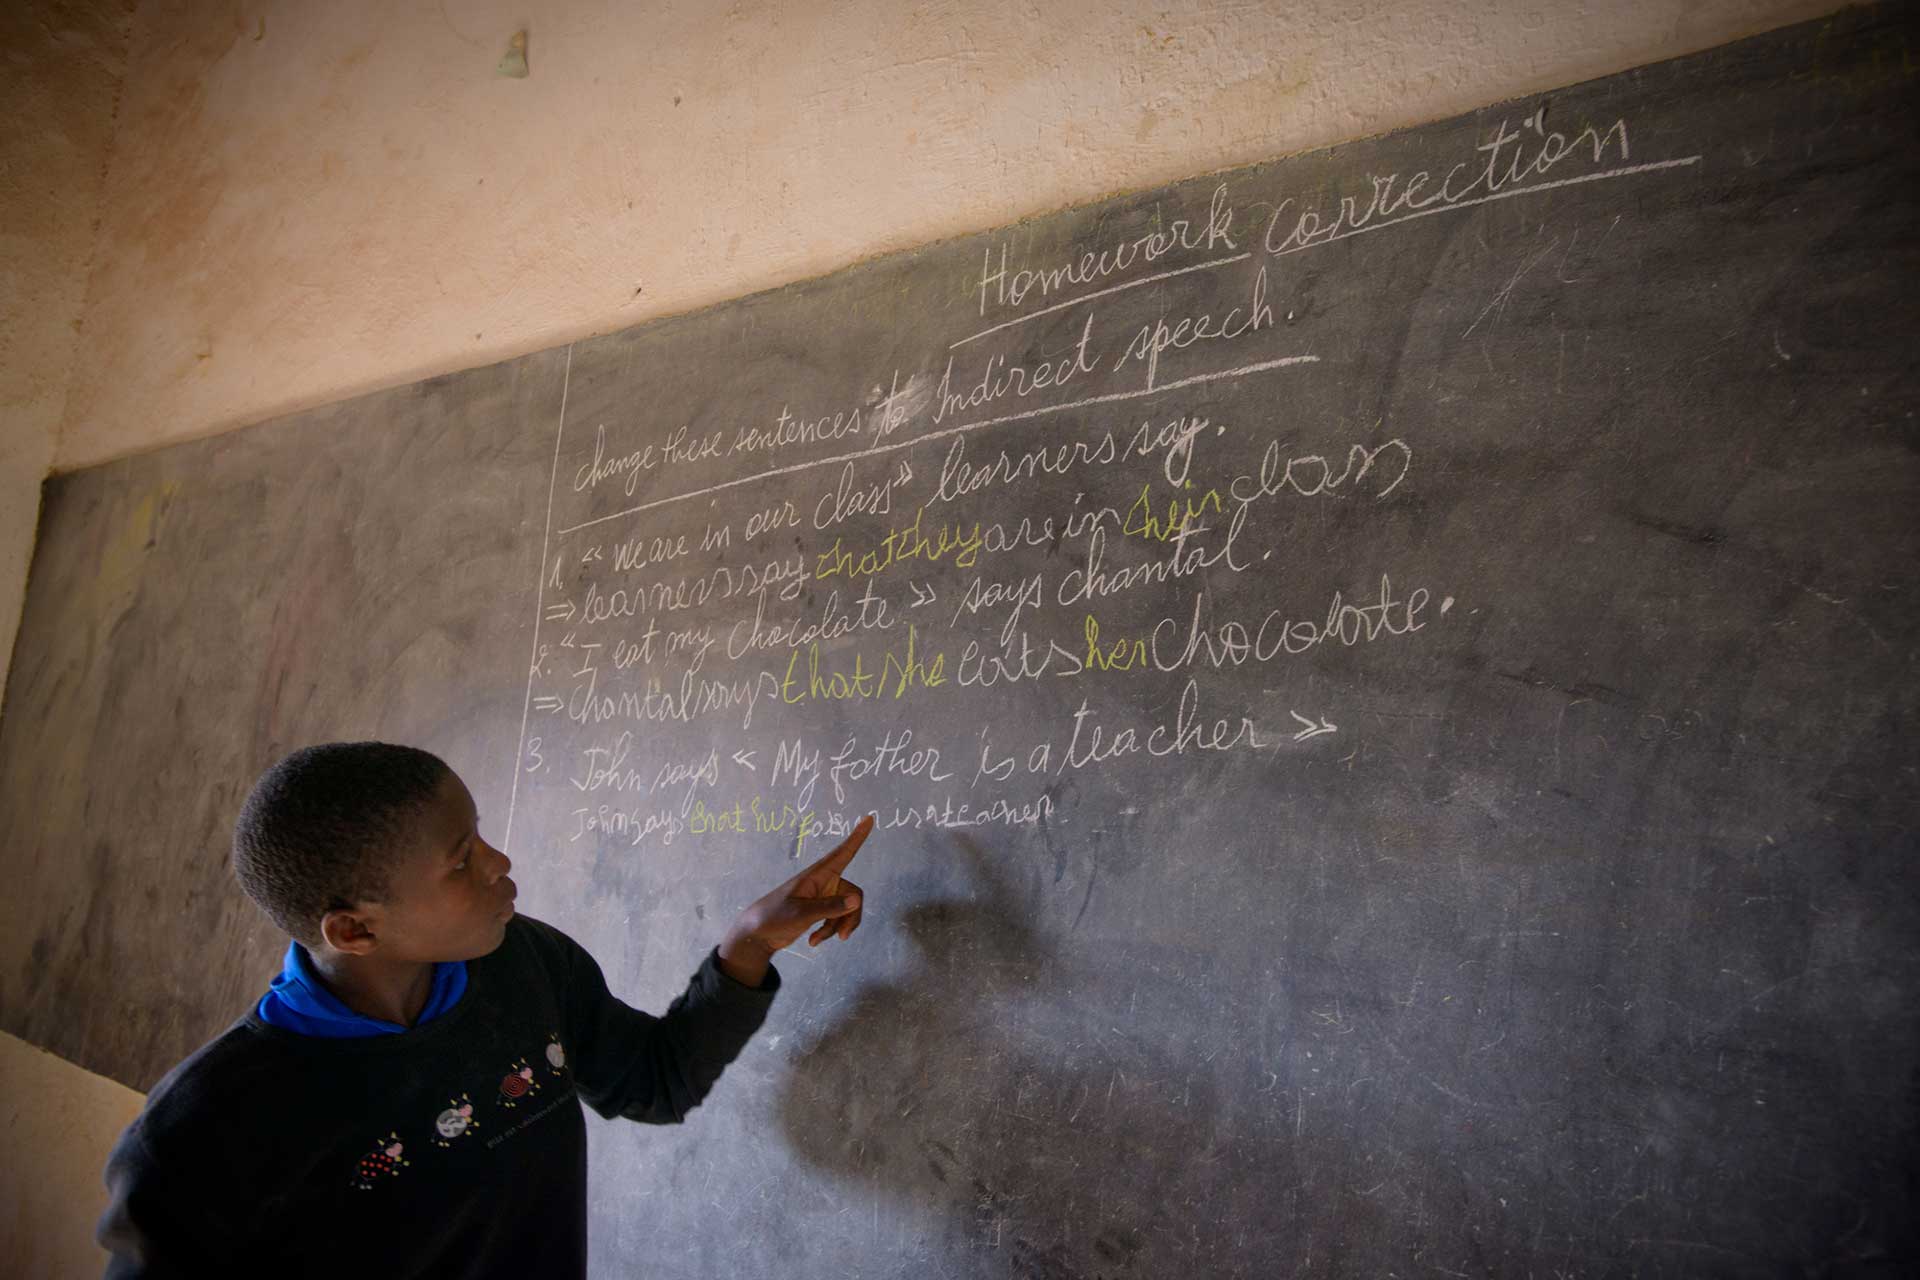 Homework correction
change these sentences to Indirect speech.
1. « We are in our class » learners say.
⇒ learners say that they are in their class
2. “I eat my chocolate » says chantal.
⇒ Chantal says that she eats her chocolate.
3. John says « My father is a teacher »
John says that his father is a teacher.